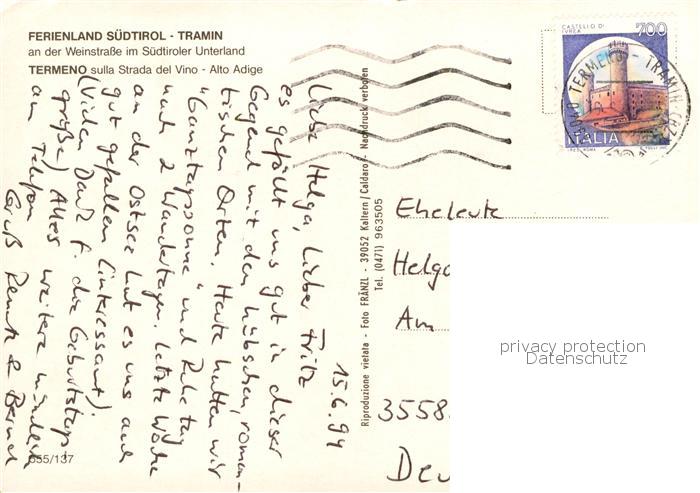 FERIENLAND SÜDTIROL - TRAMIN
an der Weinstraße im Südtiroler Unterland
TERMENO sulla Strada del Vino - Alto Adige
CASTELLO DI IVREA
700
ITALIA
TERMENO - TRAMIN (BZ)
15.6.94
Liebe Helga, Lieber Fritz
es gefällt uns gut in dieser
Gegend mit den hübschen, roman-
tischen Orten. Heute hatten wir
"Ganztagssonne" und Ruhetag
nach 2 Wandertagen. Letzte Woche
an der Ostsee hat es uns auch
gut gefallen (interessant).
(Vielen Dank f. die Geburtstags-
grüße) Alles weitere mündlich
am Telefon
Gruß
& Bernd
655/137
Riproduzione vietata - Foto FRÄNZL - 39052 Kaltern / Caldaro - Nachdruck verboten
Tel. (0471) 963505
Eheleute
Helga
Am
3558
Deu
privacy protection
Datenschutz